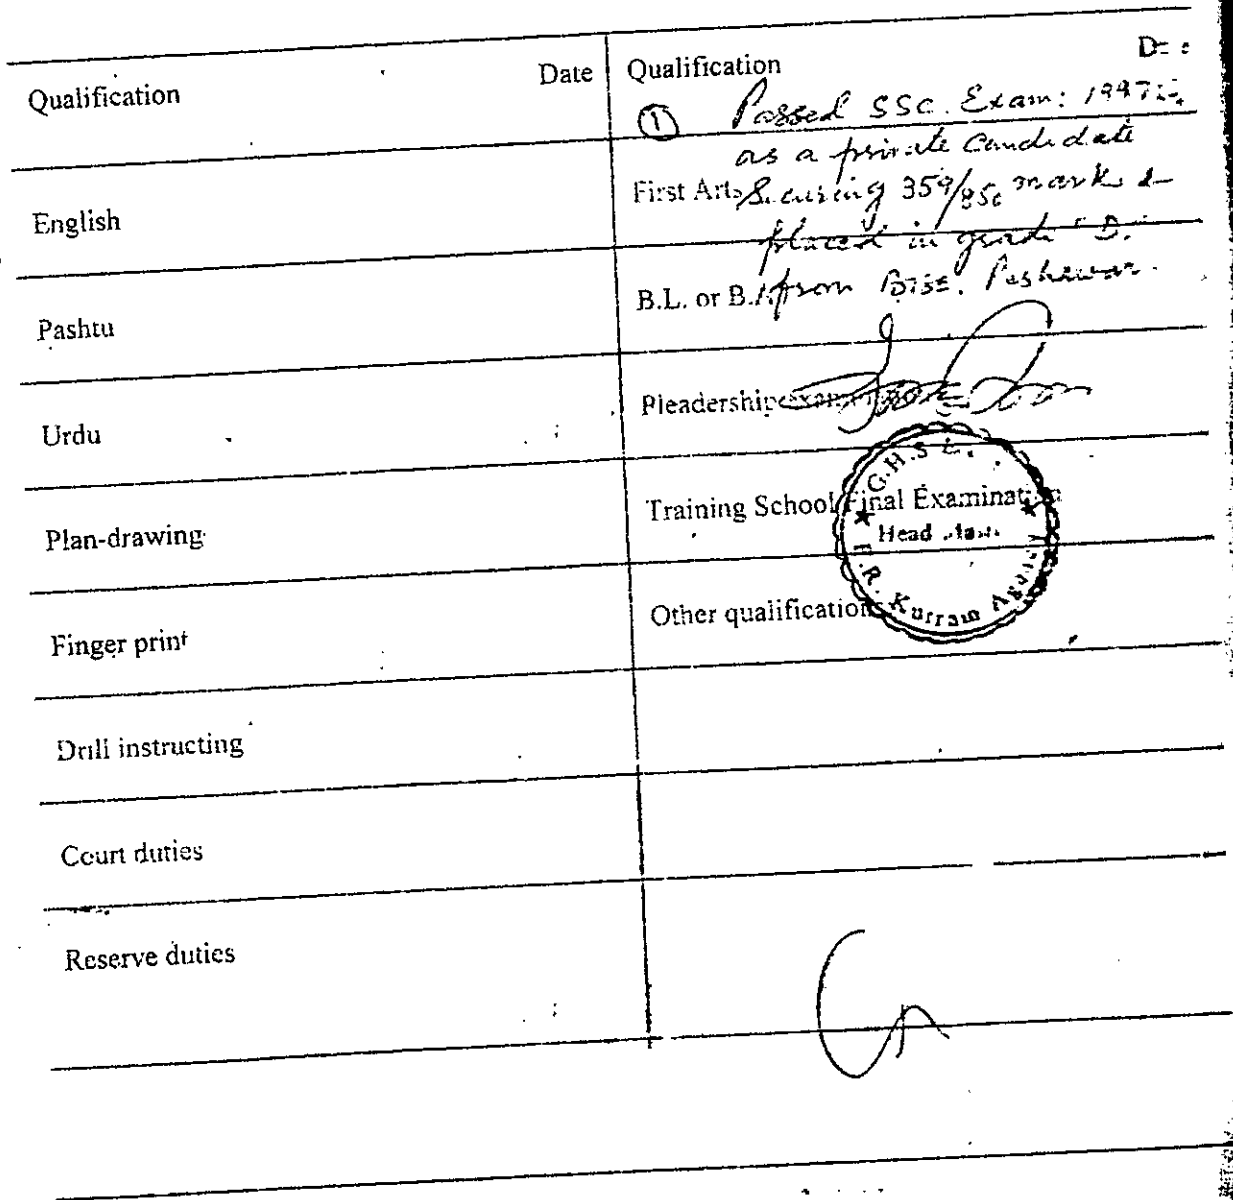 Qualification Date
English
Pashtu
Urdu
Plan-drawing
Finger print
Drill instructing
Court duties
Reserve duties
Qualification
① Passed SSC. Exam: 1997
as a private candidate
First Arts Securing 359/850 marks &
placed in grade "D."
B.L. or B.A from BISE. Peshawar.
Pleadership
Training School Final Examination
Other qualifications
G.H.S
Head
Kurram Agency